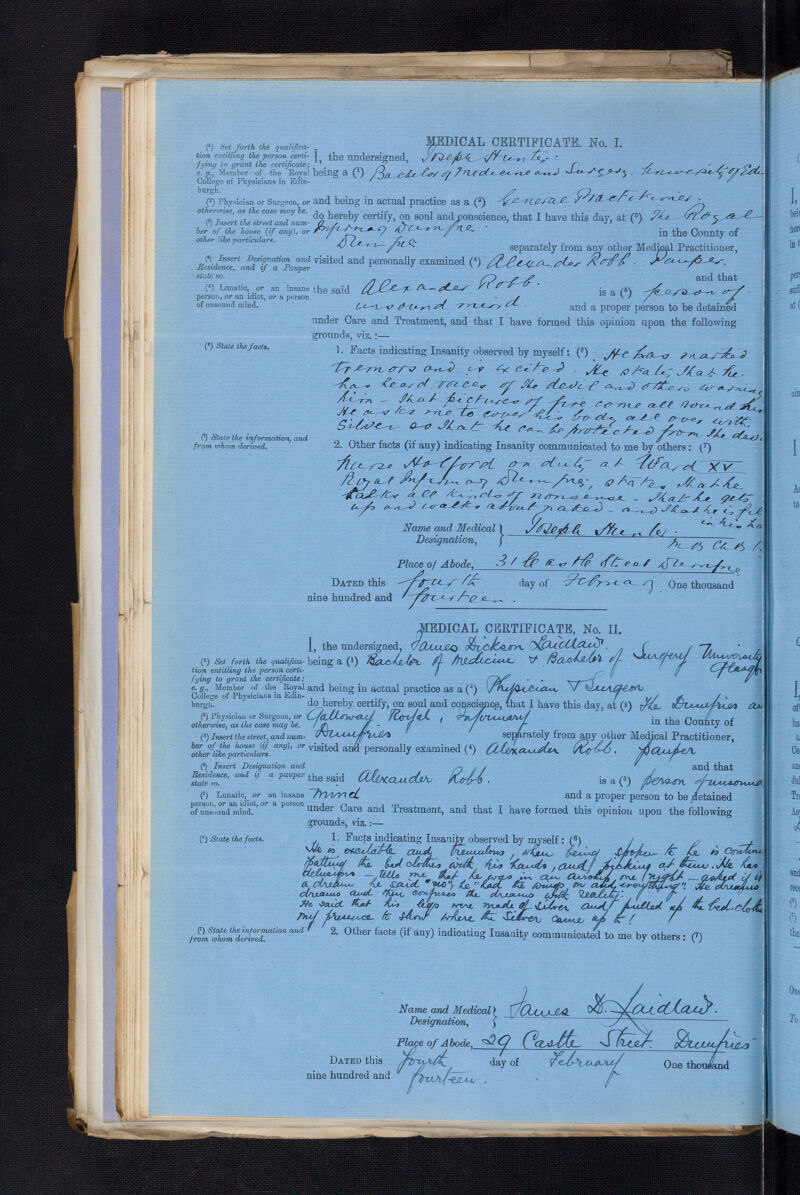 MEDICAL CERTIFICATE. No. I.
(¹) Set forth the qualifica-
tion entitling the person certi-
fying to grant the certificate;
e. g., Member of the Royal
College of Physicians in Edin-
burgh.
I, the undersigned, Joseph Hunter
being a (¹) Bachelor of Medicine and Surgery University of Edi
(²) Physician or Surgeon, or
otherwise, as the case may be.
and being in actual practice as a (²) General Practitioner.
(³) Insert the street and num-
ber of the house (if any), or
other like particulars.
do hereby certify, on soul and conscience, that I have this day, at (³) The Royal
Infirmary Dumfries in the County of
Dumfries separately from any other Medical Practitioner,
(⁴) Insert Designation and
Residence, and if a Pauper
state so.
visited and personally examined (⁴) Alexander Robb. Pauper.
and that
(⁵) Lunatic, or an insane
person, or an idiot, or a person
of unsound mind.
the said Alexander Robb. is a (⁵) person of
unsound mind. and a proper person to be detained
under Care and Treatment, and that I have formed this opinion upon the following
grounds, viz.:—
(⁶) State the facts.
1. Facts indicating Insanity observed by myself: (⁶) He has marked
tremors and is excited. He states that he
has heard voices of the devil and others warning
him - that pictures of fire come all round him
He asks me to cover his body all over with
Silver so that he can be protected from the dev
(⁷) State the information, and
from whom derived.
2. Other facts (if any) indicating Insanity communicated to me by others: (⁷)
Nurse Halford on duty at Ward XV
Royal Infirmary Dumfries, states that he
talks all kinds of nonsense - that he gets
up and walks about naked - and that he is
in his ha
Name and Medical Designation, Joseph Hunter.
M B Ch B
Place of Abode, 31 Castle Street Dumfries
DATED this fourth day of February One thousand
nine hundred and fourteen.
MEDICAL CERTIFICATE, No. II.
I, the undersigned, James Dickson Laidlaw
(¹) Set forth the qualifica-
tion entitling the person certi-
fying to grant the certificate;
e. g., Member of the Royal
College of Physicians in Edin-
burgh.
being a (¹) Bachelor of Medicine & Bachelor of Surgery University
Glasgow
and being in actual practice as a (²) Physician & Surgeon
(²) Physician or Surgeon, or
otherwise, as the case may be.
do hereby certify, on soul and conscience, that I have this day, at (³) The Dumfries an
Galloway Royal Infirmary in the County of
(³) Insert the street, and num-
ber of the house (if any), or
other like particulars.
Dumfries separately from any other Medical Practitioner,
visited and personally examined (⁴) Alexander Robb. pauper
(⁴) Insert Designation and
Residence, and if a pauper
state so.
and that
the said Alexander Robb. is a (⁵) person of unsound
(⁵) Lunatic, or an insane
person, or an idiot, or a person
of unsound mind.
mind and a proper person to be detained
under Care and Treatment, and that I have formed this opinion upon the following
grounds, viz.:—
(⁶) State the facts.
1. Facts indicating Insanity observed by myself: (⁶)
He is excitable and tremulous, when being spoken to he is contin
patting the bed clothes with his hands, and picking at them. He has
delusions - tells me that he was in an airship one night - asked if it
a dream he said "no", he "had the wings on and everything". He dreams
dreams and then confuses the dreams with reality.
He said that his legs were made of silver and pulled up the bed-clothes
my presence to show where the silver came up to!
(⁷) State the information and
from whom derived.
2. Other facts (if any) indicating Insanity communicated to me by others: (⁷)
Name and Medical Designation, James D. Laidlaw.
Place of Abode, 29 Castle Street. Dumfries
DATED this fourth day of February One thousand
nine hundred and fourteen.